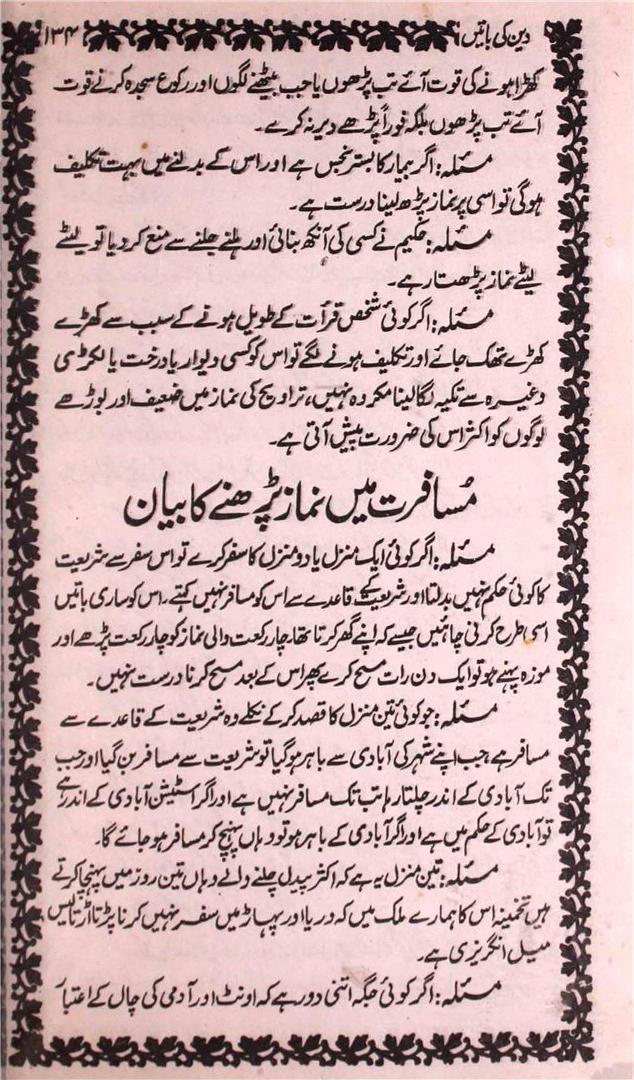 دین کی باتیں ۱۳۴
کھڑا ہونے کی قوت آئے تب پڑھوں یا جب بیٹھنے لگوں اور رکوع سجدہ کرنے قوت
آئے تب پڑھوں بلکہ فوراً پڑھے دیر نہ کرے۔
مسئلہ: اگر بیمار کا بستر نجس ہے اور اس کے بدلنے میں بہت تکلیف
ہوگی تو اسی پر نماز پڑھ لینا درست ہے۔
مسئلہ: حکیم نے کسی کی آنکھ بنائی اور ہلنے جلنے سے منع کر دیا تو لیٹے
لیٹے نماز پڑھتا رہے۔
مسئلہ: اگر کوئی شخص قرأت کے طویل ہونے کے سبب سے کھڑے
کھڑے تھک جائے اور تکلیف ہونے لگے تو اس کو کسی دیوار یا درخت یا لکڑی
وغیرہ سے تکیہ لگا لینا مکروہ نہیں، تراویح کی نماز میں ضعیف اور بوڑھے
لوگوں کو اکثر اس کی ضرورت پیش آتی ہے۔
مُسافرت میں نماز پڑھنے کا بیان
مسئلہ: اگر کوئی ایک منزل یا دو منزل کا سفر کرے تو اس سفر سے شریعت
کا کوئی حکم نہیں بدلتا اور شریعت کے قاعدے سے اس کو مسافر نہیں کہتے، اس کو ساری باتیں
اسی طرح کرنی چاہئیں جیسے کہ اپنے گھر کرتا تھا، چار رکعت والی نماز کو چار رکعت پڑھے اور
موزہ پہنے ہو تو ایک دن رات مسح کرے پھر اس کے بعد مسح کرنا درست نہیں۔
مسئلہ: جو کوئی تین منزل کا قصد کر کے نکلے وہ شریعت کے قاعدے سے
مسافر ہے جب اپنے شہر کی آبادی سے باہر ہو گیا تو شریعت سے مسافر بن گیا اور جب
تک آبادی کے اندر چلتا رہا تب تک مسافر نہیں ہے اور اگر اسٹیشن آبادی کے اندر ہے
تو آبادی کے حکم میں ہے اور اگر آبادی کے باہر ہو تو وہاں پہنچ کر مسافر ہو جائے گا۔
مسئلہ: تین منزل یہ ہے کہ اکثر پیدل چلنے والے وہاں تین روز میں پہنچا کرتے
ہیں تخمینہ اس کا ہمارے ملک میں کہ دریا اور پہاڑ میں سفر نہیں کرنا پڑتا اڑتالیس
میل انگریزی ہے۔
مسئلہ: اگر کوئی جگہ اتنی دور ہے کہ اونٹ اور آدمی کی چال کے اعتبار